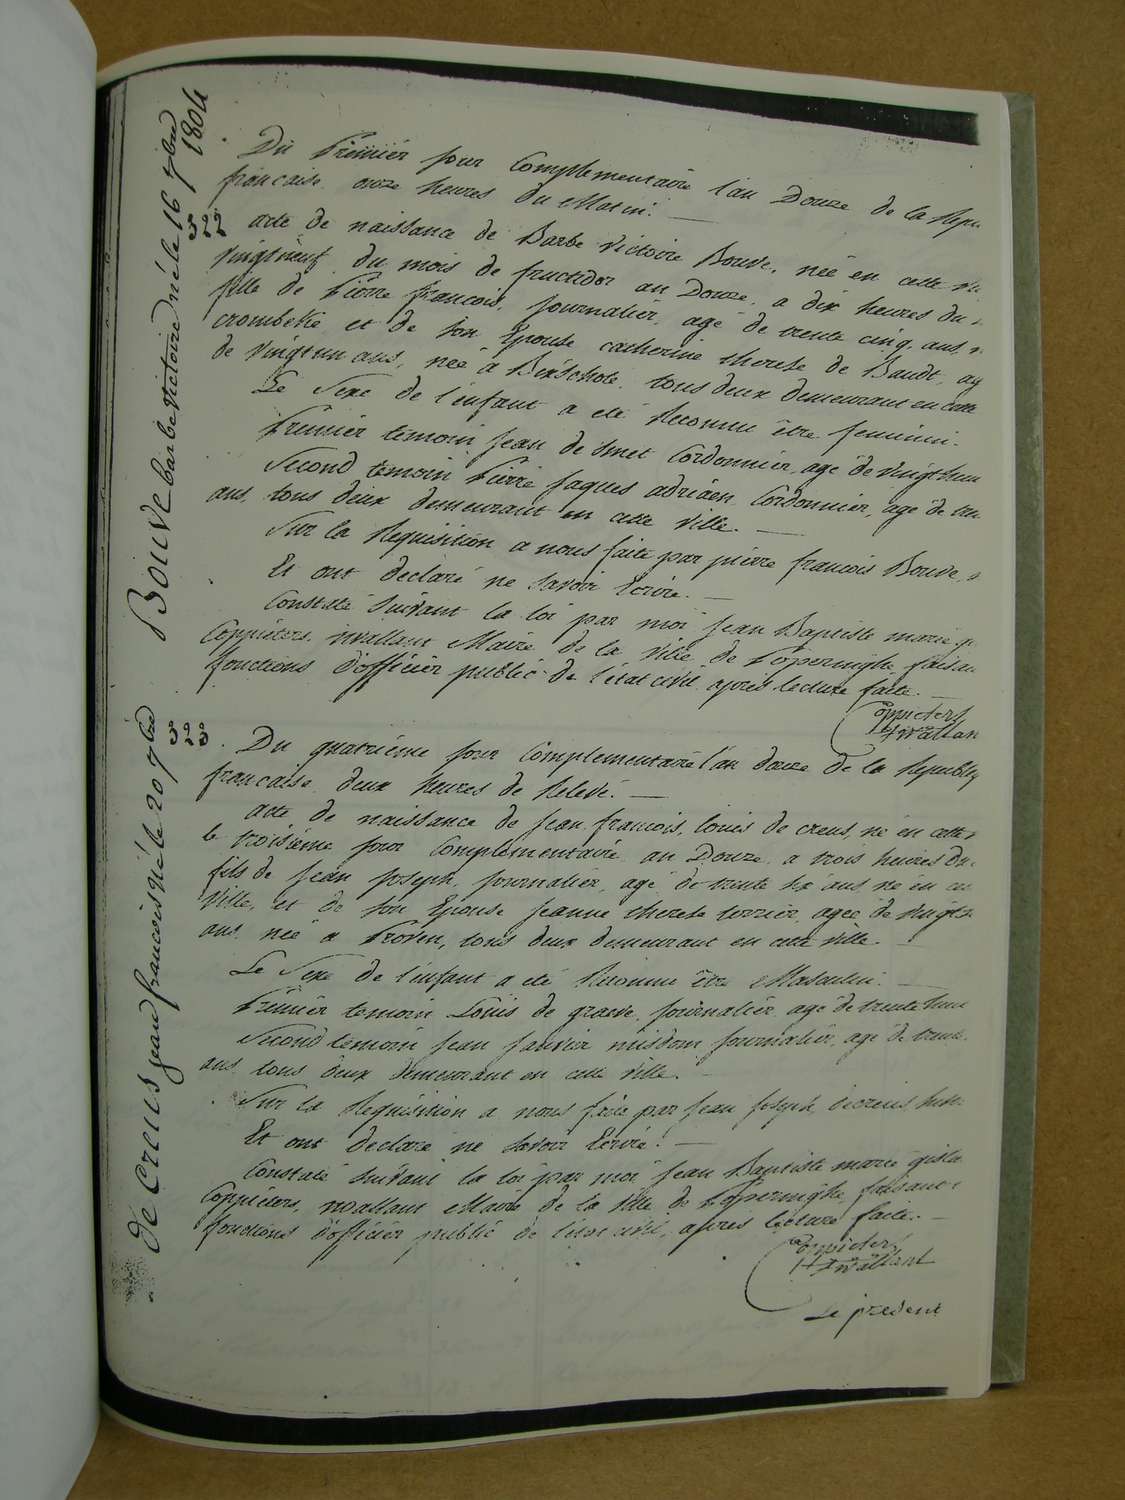 Bouve barbe victoire né le 16 7bre 1804
322
Du Premier jour Complementaire l'an Douze de la Repu
francaise onze heures du Matin. —
acte de naissance de Barbe Victoire Bouve, née en cette
vingtneuf du mois de fructidor an Douze, a dix heures du
fille de Pierre francois, journalier, agé de trente cinq ans,
crombeke et de son Epouse catherine therese de Baudt, ag
de vingtun ans, née à Bixschote, tous deux demeurant en cette
Le Sexe de l'enfant a eté Reconnu être feminin.
Premier temoin jean de smet Cordonnier, agé de vingthuit
Second temoin Pierre jaques adriaen, Cordonnier, agé de
ans, tous deux demeurant en cette ville. —
Sur la Requisition a nous faite par pierre francois Bouve,
Et ont declaré ne savoir Ecrire. —
Constaté suivant la loi par moi jean Baptiste marie
Coppieters, wallant Maire de la ville de Poperinghe faisan
fonctions d'officier public de l'etat civil, après lecture faite. —
Coppieters
twallan
de Creus jean francois Né le 20 7bre
323
Du quatrième jour Complementaire l'an douze de la Republiq
francaise deux heures de Relevé. —
acte de naissance de jean francois, louis de creus, né en cette
le troisième jour Complementaire an Douze, a trois heures du
fils de jean joseph, journalier, agé de trente six ans, né en
ville, et de son Epouse jeanne therese terrier, agée de vingt
ans née a Proven, tous deux demeurant en cette ville. —
Le Sexe de l'enfant a eté Reconnu être Masculin. —
Premier temoin Louis de graeve, journalier, agé de trente
Second temoin jean misdom journalier, agé de trente
ans, tous deux demeurant en cette ville. —
Sur la Requisition a nous faite par jean joseph decreus,
Et ont declaré ne savoir Ecrire. —
Constaté suivant la loi par moi jean Baptiste marie gisla
Coppieters, wallant Maire de la ville de Poperinghe, faisant
fonctions d'officier public de l'etat civil, après lecture faite. —
Coppieters
twallant
Le present